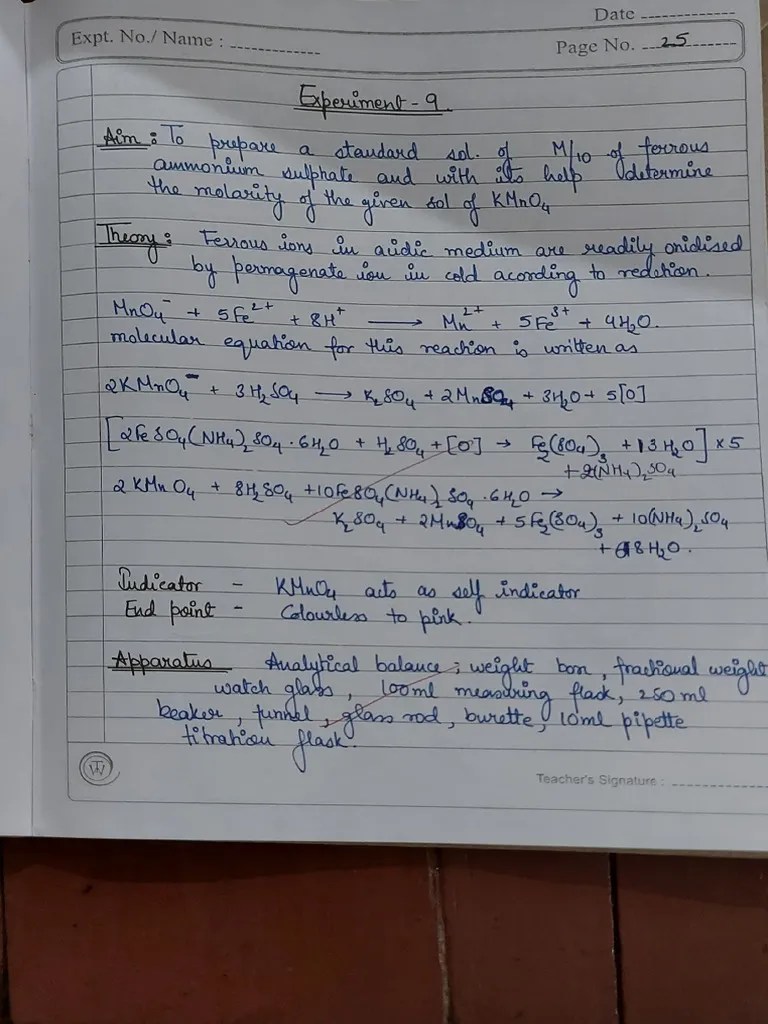 Date
Expt. No./ Name :
Page No. 25
Experiment - 9
Aim : To prepare a standard sol. of M/10 of ferrous
ammonium sulphate and with its help determine
the molarity of the given sol of KMnO4
Theory : Ferrous ions in acidic medium are readily onidised
by permagenate ion in cold acording to redetion.
MnO4⁻ + 5Fe²⁺ + 8H⁺ ⟶ Mn²⁺ + 5Fe³⁺ + 4H2O.
molecular equation for this reaction is written as
2KMnO4⁻ + 3H2SO4 ⟶ K2SO4 + 2MnSO4 + 3H2O + 5[O]
[2FeSO4(NH4)2SO4·6H2O + H2SO4 + [O] → Fe2(SO4)3 + 13H2O] ×5
+ 2(NH4)2SO4
2KMnO4 + 8H2SO4 + 10FeSO4(NH4)2SO4·6H2O →
K2SO4 + 2MnSO4 + 5Fe2(SO4)3 + 10(NH4)2SO4
+ 68H2O.
Indicator - KMnO4 acts as self indicator
End point - Colourless to pink.
Apparatus Analytical balance ; weight bon, fractional weight
watch glass, 100ml measuring flask, 250 ml
beaker, funnel, glass rod, burette, 10ml pipette
titration flask.
Teacher's Signature :